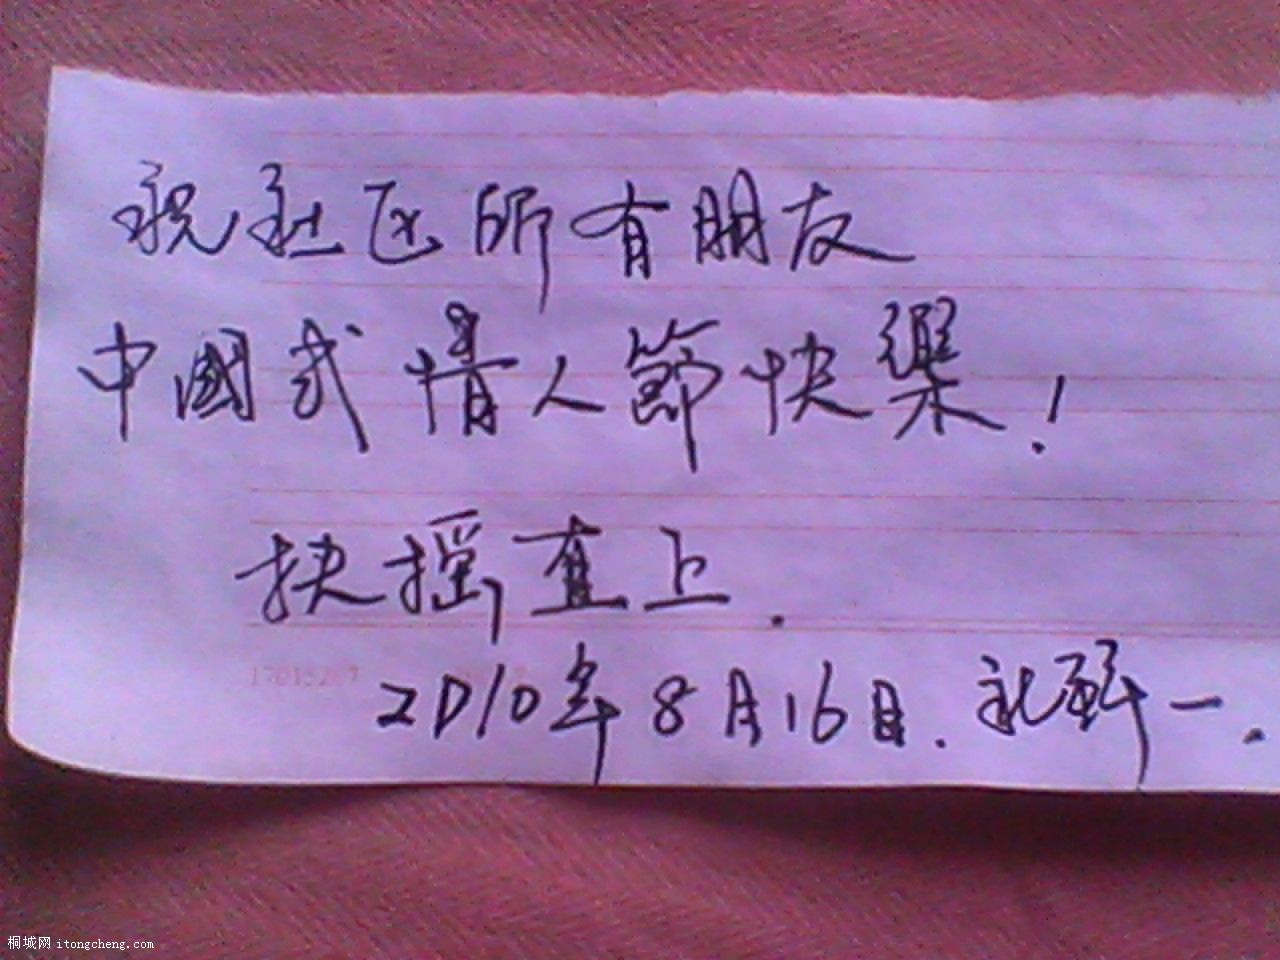 祝社区所有朋友
中國式情人節快樂！
扶摇直上.
17015207
2010年8月16日. 礼拜一.
桐城网 itongcheng.com